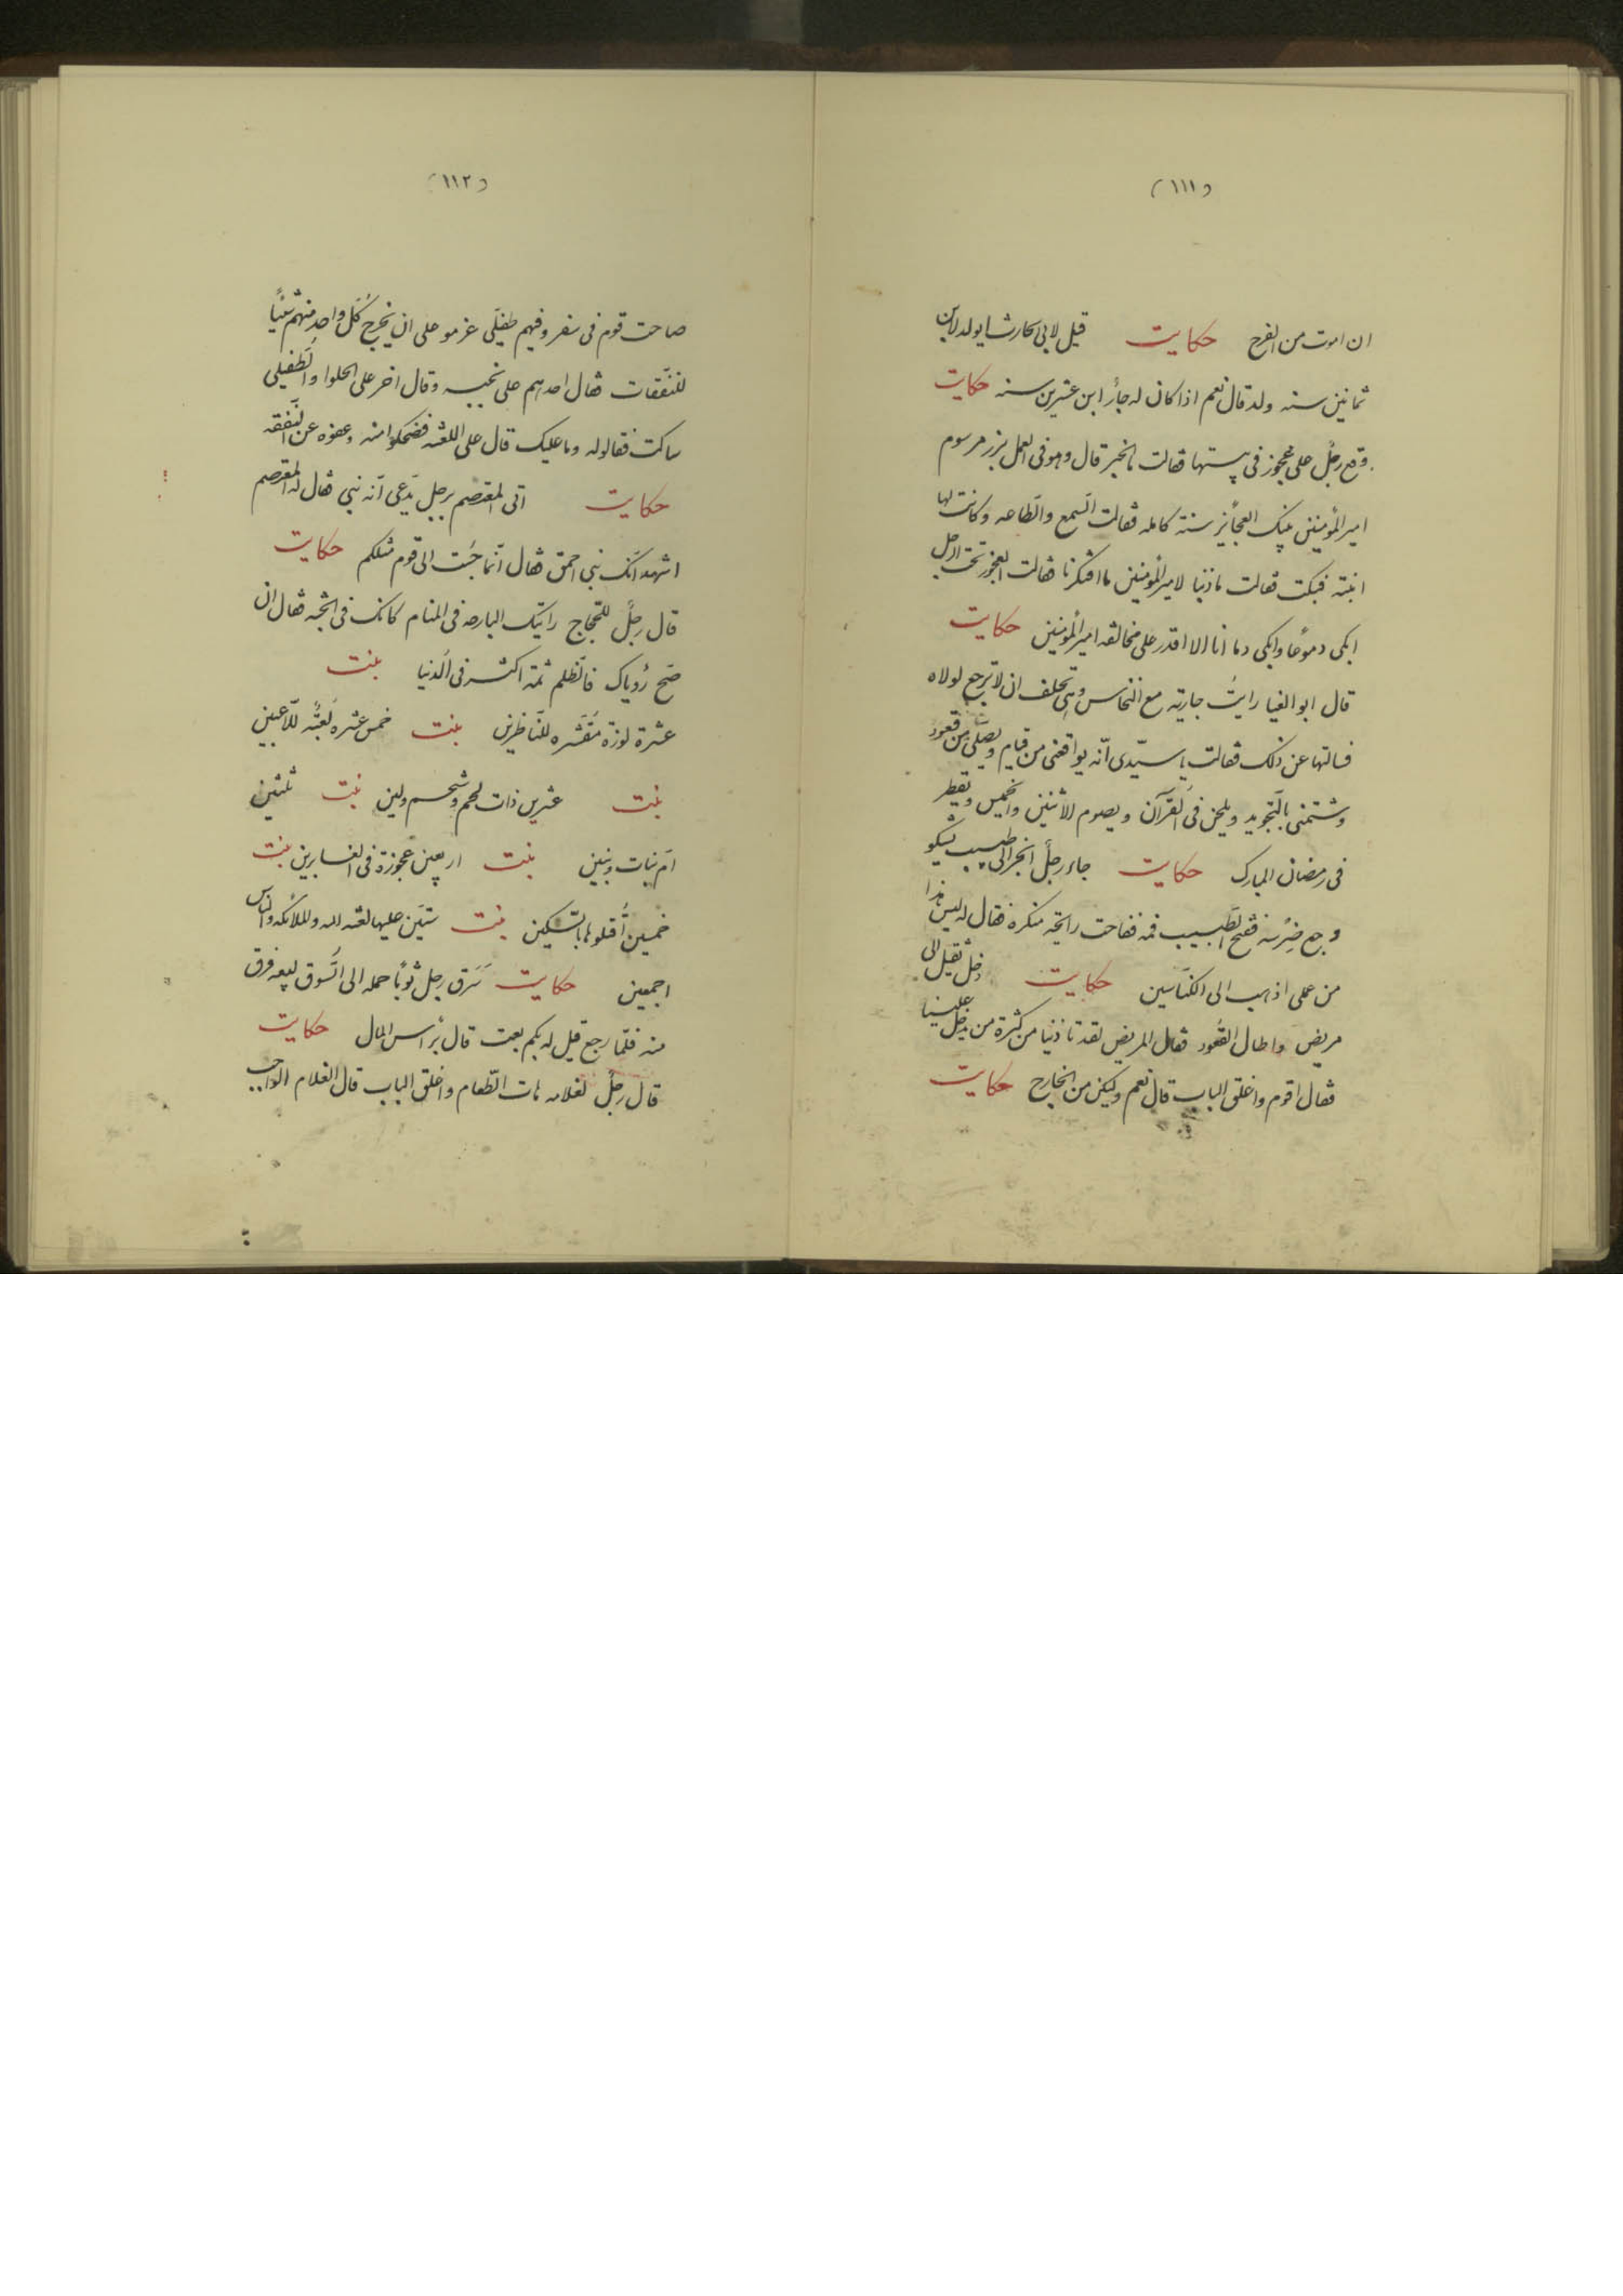 (١١١)
ان اموت من الفرح حكايت قيل لابى الحارث ايولد لابن
ثمانين سنه ولد قال نعم اذا كان له جارٌ ابن عشرين سنه حكايت
وقع رجلٌ على عجوز فى قالت ما الخبر قال وهو فى العمل برز مرسوم
امير المؤمنين بنيك العجائيز سنة كامله فقالت السّمع والطّاعه وكانت لها
ابنته فبكت فقالت ما ذنبنا لامير المؤمنين ما افتكرنا فقالت العجوز تحت الرجل
ابكى دموعًا وابكى دما انا الا اقدر على مخالفه امير المؤمنين حكايت
قال ابو العينا رايتُ جارية مع النخاس وهى تحلف ان لا ترجع لولاه
فسالتها عن ذلك فقالت يا سيّدى انّه يواقعنى من قيام ويصلّى من قعود
وشتمنى بالتّجويد ويلحن فى القرآن ويصوم الاثنين والخميس ويفطر
فى رمضان المبارك حكايت جاء رجلٌ ابخر الى طبيب يشكو
وجع ضِرْسه ففتح الطّبيب فمه ففاحت رائحة منكره فقال له ليس هذا
من عملى اذهب الى الكنّاسين حكايت دخل ثقيل الى
مريض واطال القعُود فقال المريض لقد تاذّينا من كثرة من يدخل علينا
فقال اقوم واغلق الباب قال نعم وليكن من الخارج حكايت
(١١٢)
صاحت قوم فى سفر وفيهم طفيلى عزمو على ان يخرج كُلّ واحدٍ منهم شيئًا
للنّفقات فقال احدهم على وقال اخر على الحلوا والطّفيلى
ساكت فقالوله وما عليك قال على اللعنه فضحكوا منه وعفوه عن النّفقه
حكايت اتى المعتصم برجل يدّعى انّه نبى فقال له المعتصم
اشهد انّك نبى احمق فقال انّما جئت الى قوم مثلكم حكايت
قال رجلٌ للحجّاج رايتك البارحه فى المنام كانك فى الجنّه فقال ان
صّح رُؤياك فالظّلم ثمة اكثر فى الدّنيا بنت
عشرة لوزة مُقَشّره للنّاظرين بنت خمس عشره لُعْبَةٌ للّاعبين
بنت عشرين ذات لحم وشحم ولين بنت ثلثين
امّ بنات وبنين بنت اربعين عجوزة فى الغابرين بنت
خمسين اُقتلوها بالسّكين بنت ستّين عليها لعنه الله والملائكه والنّاس
اجمعين حكايت سَرَق رجل ثوبًا حمله الى السّوق ليبيعه فسرق
منه فلمّا رجع قيل له بكم بعت قال براس المال حكايت
قال رجلٌ لغلامه هات الطّعام واغلق الباب قال الغلام الواجب